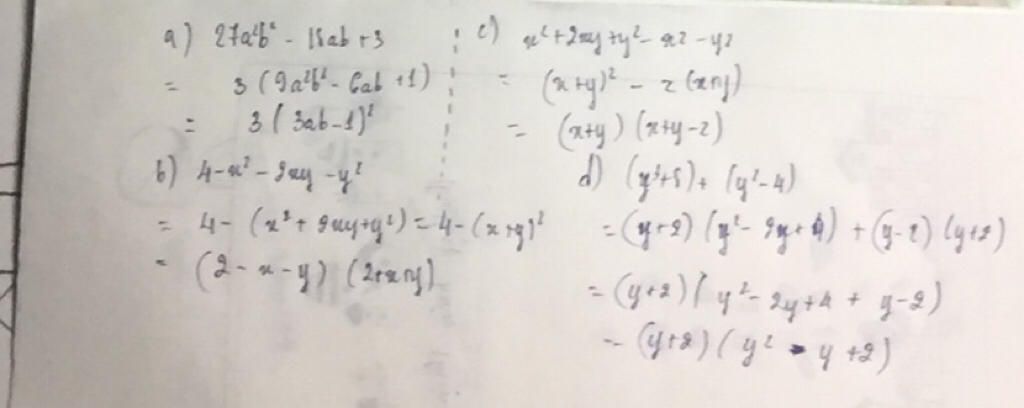 a) 27a²b² - 18ab + 3
= 3 (9a²b² - 6ab + 1)
= 3 (3ab - 1)²
b) 4 - x² - 2xy - y²
= 4 - (x² + 2xy + y²) = 4 - (x + y)²
= (2 - x - y) (2 + x + y)
c) x² + 2xy + y² - xz - yz
= (x + y)² - z (x + y)
= (x + y) (x + y - z)
d) (y³ + 8) + (y² - 4)
= (y + 2) (y² - 2y + 4) + (y - 2) (y + 2)
= (y + 2) (y² - 2y + 4 + y - 2)
= (y + 2) (y² - y + 2)